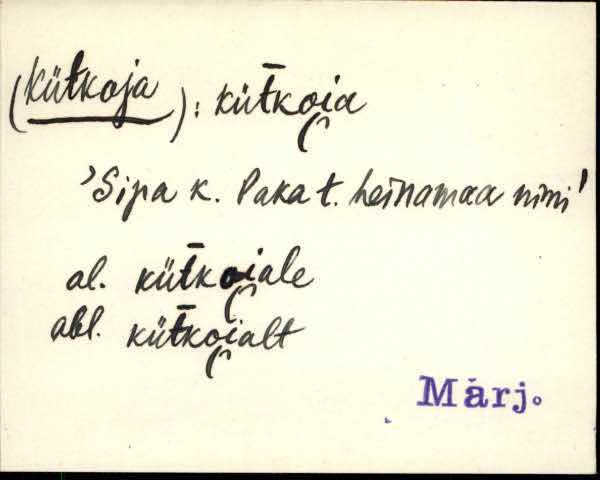 (Kütkoja): küt̄koi̯a
'Sipa k. Paka t. heinamaa nimi'
al. küt̄koi̯ale
abl. küt̄koi̯alt
Märj.